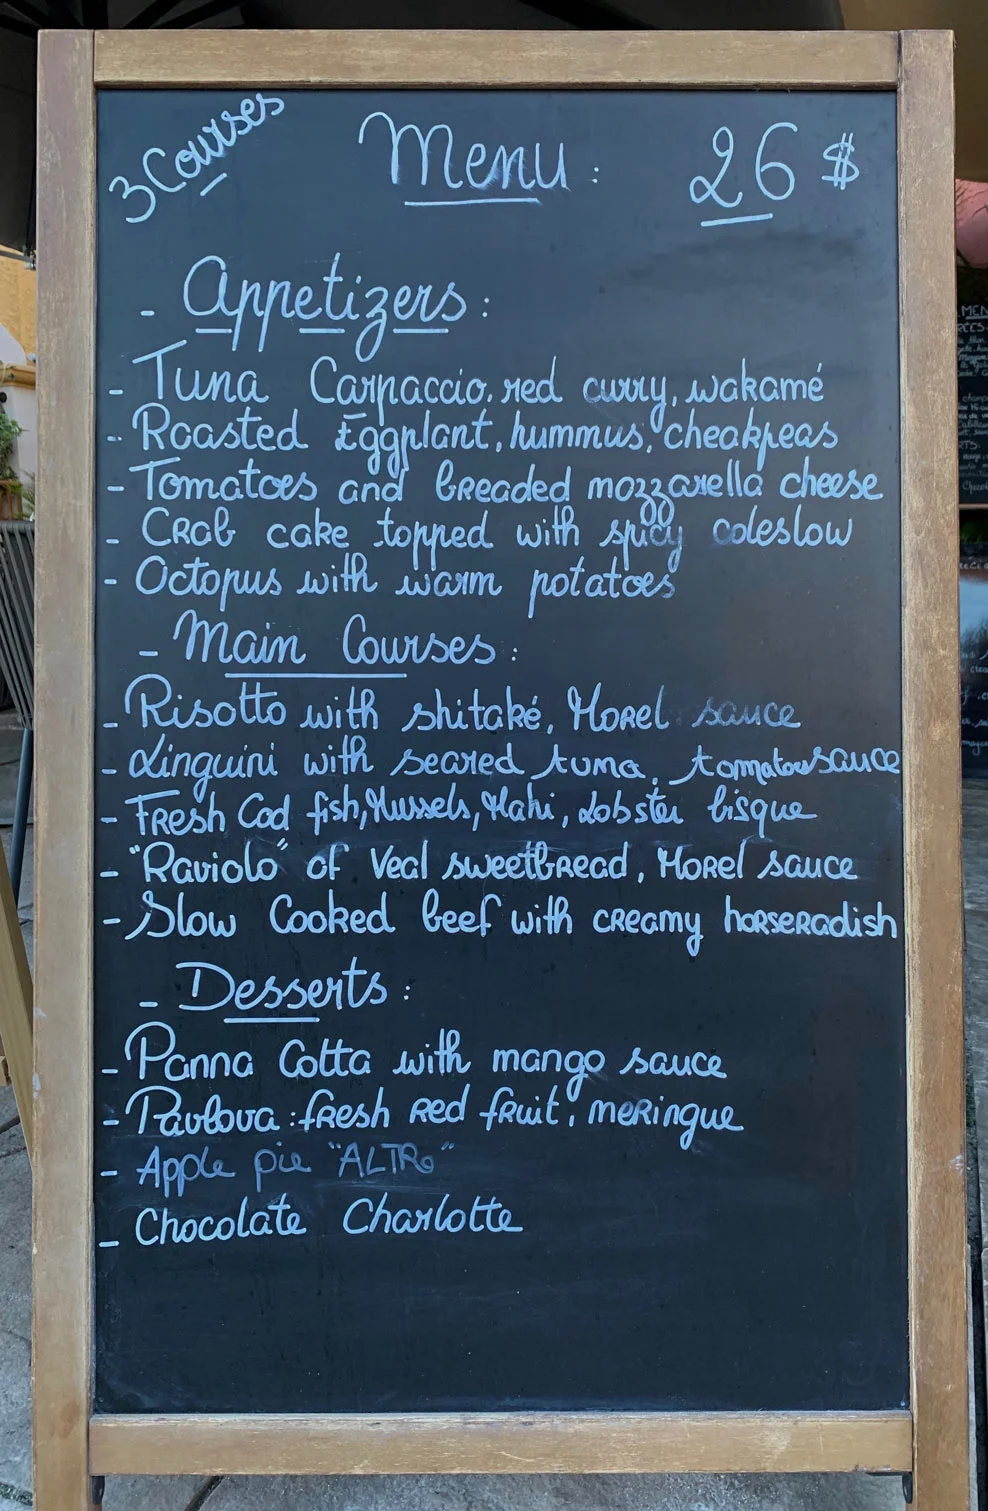 3 Courses Menu: 26 $
- Appetizers:
- Tuna Carpaccio, red curry, wakamé
- Roasted Eggplant, hummus, cheakpeas
- Tomatoes and breaded mozzarella cheese
- Crab cake topped with spicy coleslow
- Octopus with warm potatoes
- Main Courses:
- Risotto with shitaké, Morel sauce
- Linguini with seared tuna, tomatoe sauce
- Fresh Cod fish, Mussels, Mahi, Lobster bisque
- "Raviolo" of Veal sweetbread, Morel sauce
- Slow Cooked beef with creamy horseradish
- Desserts:
- Panna Cotta with mango sauce
- Pavlova: fresh red fruit, meringue
- Apple pie "ALTRo"
- Chocolate Charlotte